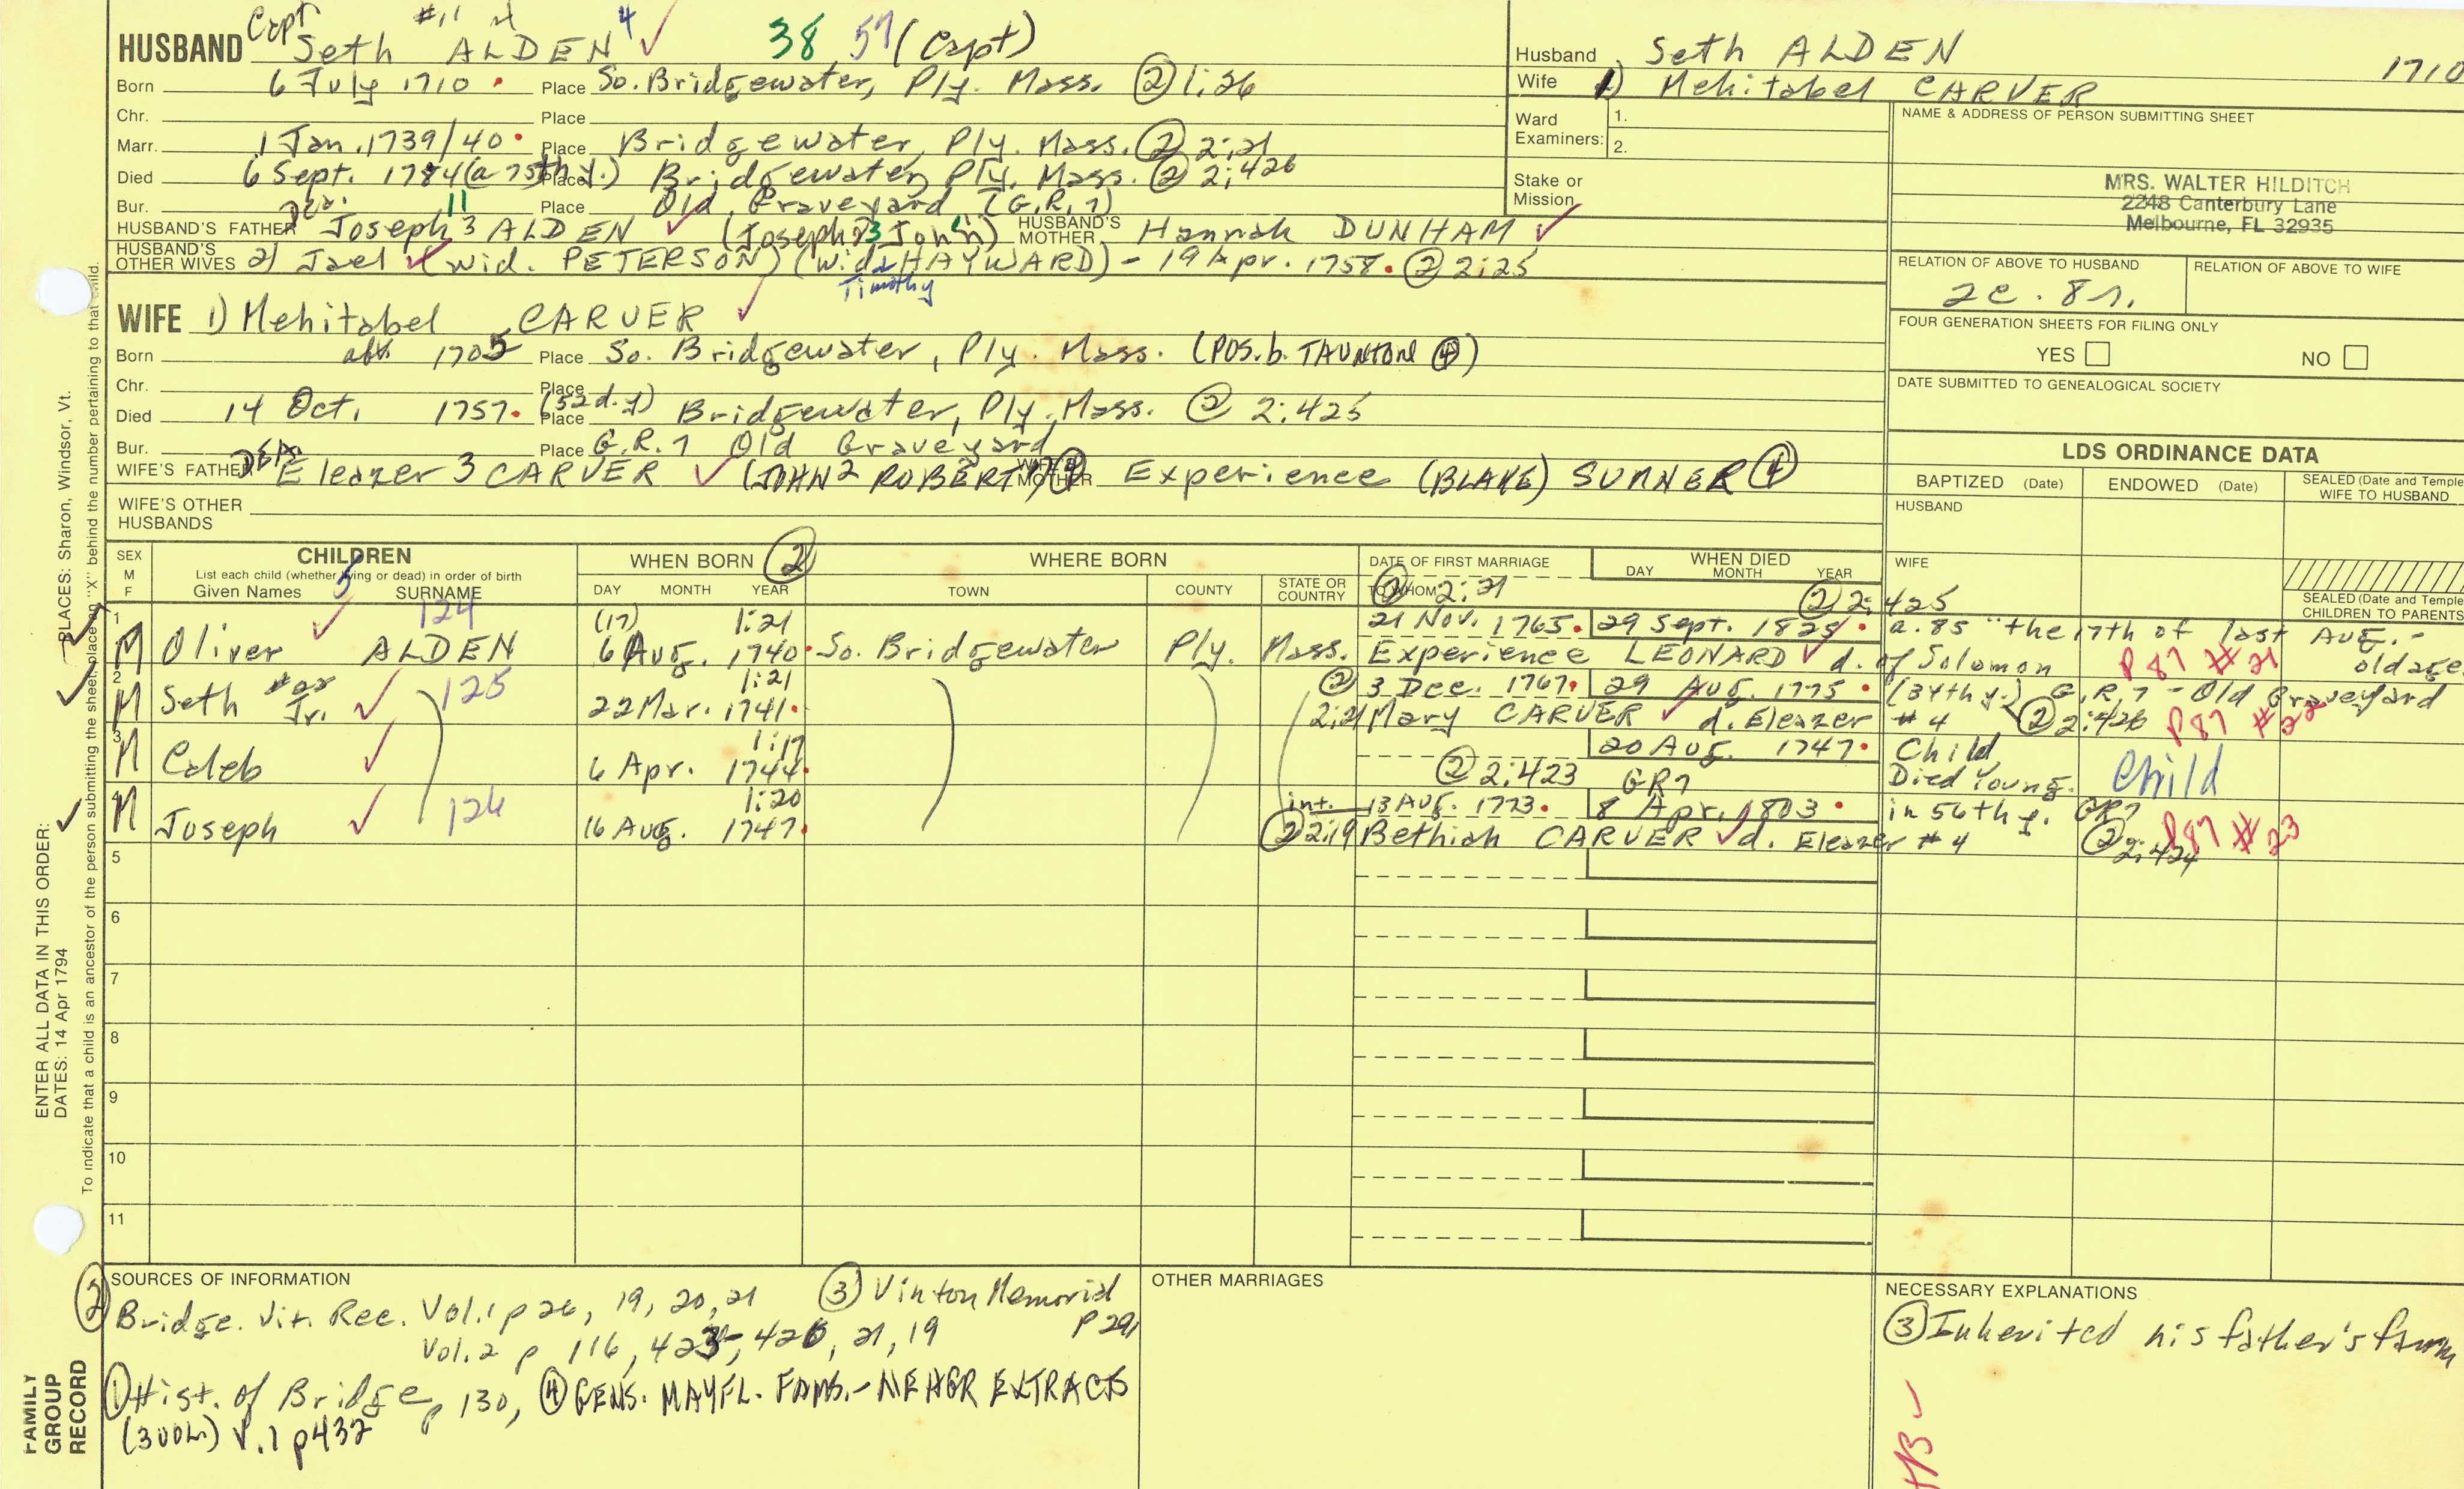 Capt #11
HUSBAND Seth ALDEN 4 38 57 (Capt)
Born 6 July 1710 Place So. Bridgewater, Ply. Mass. ② 1:26
Chr. Place
Marr. 1 Jan. 1739/40 Place Bridgewater, Ply. Mass. ② 2:21
Died 6 Sept. 1784 (a 75th y.) Place Bridgewater, Ply. Mass. ② 2:426
Bur. Place Old Graveyard (G.R.7)
11
HUSBAND'S FATHER Joseph 3 ALDEN (Joseph 2 John) HUSBAND'S MOTHER Hannah DUNHAM
HUSBAND'S OTHER WIVES 2) Jael (wid. PETERSON) (wid. HAYWARD) - 19 Apr. 1758. ② 2:25
Timothy
WIFE 1) Mehitabel CARVER
Born abt 1705 Place So. Bridgewater, Ply. Mass. (POS. b. TAUNTON ④)
Chr. Place
Died 14 Oct. 1757. (52d. y) Place Bridgewater, Ply. Mass. ② 2:425
Bur. Place G.R.7 Old Graveyard
WIFE'S FATHER Eleazer 3 CARVER (JOHN 2 ROBERT 1) ④ WIFE'S MOTHER Experience (BLAKE) SUMNER ④
WIFE'S OTHER HUSBANDS
Husband Seth ALDEN 1710
Wife 1) Mehitabel CARVER
Ward Examiners: 1.
2.
Stake or Mission
NAME & ADDRESS OF PERSON SUBMITTING SHEET
MRS. WALTER HILDITCH
2248 Canterbury Lane
Melbourne, FL 32935
RELATION OF ABOVE TO HUSBAND RELATION OF ABOVE TO WIFE
2c. 8r.
FOUR GENERATION SHEETS FOR FILING ONLY
YES NO
DATE SUBMITTED TO GENEALOGICAL SOCIETY
LDS ORDINANCE DATA
BAPTIZED (Date) ENDOWED (Date) SEALED (Date and Temple
WIFE TO HUSBAND
HUSBAND
WIFE
SEALED (Date and Temple
CHILDREN TO PARENTS
SEX M F CHILDREN WHEN BORN ② WHERE BORN DATE OF FIRST MARRIAGE WHEN DIED
List each child (whether living or dead) in order of birth
Given Names 5 SURNAME DAY MONTH YEAR TOWN COUNTY STATE OR COUNTRY TO WHOM DAY MONTH YEAR
② 2:21 ② 2:425
124
1 (17) 1:21 21 Nov. 1765. 29 Sept. 1825. a. 85 "the 17th of last Aug. -
M Oliver ALDEN 6 Aug. 1740. So. Bridgewater Ply. Mass. Experience LEONARD d. of Solomon P87 #21 old age
2 125 1:21 ② 3 Dec. 1767. 29 Aug. 1775. (34th y.) G.R.7 - Old Graveyard
M Seth Jr. 22 Mar. 1741. 2:21 Mary CARVER d. Eleazer #4 ② 2:426 P87 #22
3 1:17 20 Aug. 1747. Child
M Caleb 6 Apr. 1744. ② 2:423 GR7 Died Young. Child
4 126 1:20 int. 13 AUG. 1773. 8 Apr. 1803. in 56th y. GR7
M Joseph 16 Aug. 1747. ② 2:19 Bethiah CARVER d. Eleazer #4 ② 2:424 P87 #23
5
6
7
8
9
10
11
SOURCES OF INFORMATION
② Bridge. Vit. Rec. Vol. 1 p 26, 19, 20, 21 ③ Vinton Memorial
Vol. 2 p 116, 423-, 426, 21, 19 P 291
① Hist. of Bridge p 130, ④ GENS. MAYFL. FAMS. - NEHGR EXTRACTS
V. 1 p 437
OTHER MARRIAGES
NECESSARY EXPLANATIONS
③ Inherited his father's farm
FAMILY GROUP RECORD
ENTER ALL DATA IN THIS ORDER:
DATES: 14 Apr 1794
PLACES: Sharon, Windsor, Vt.
To indicate that a child is an ancestor of the person submitting the sheet, place an "X" behind the number pertaining to that child.